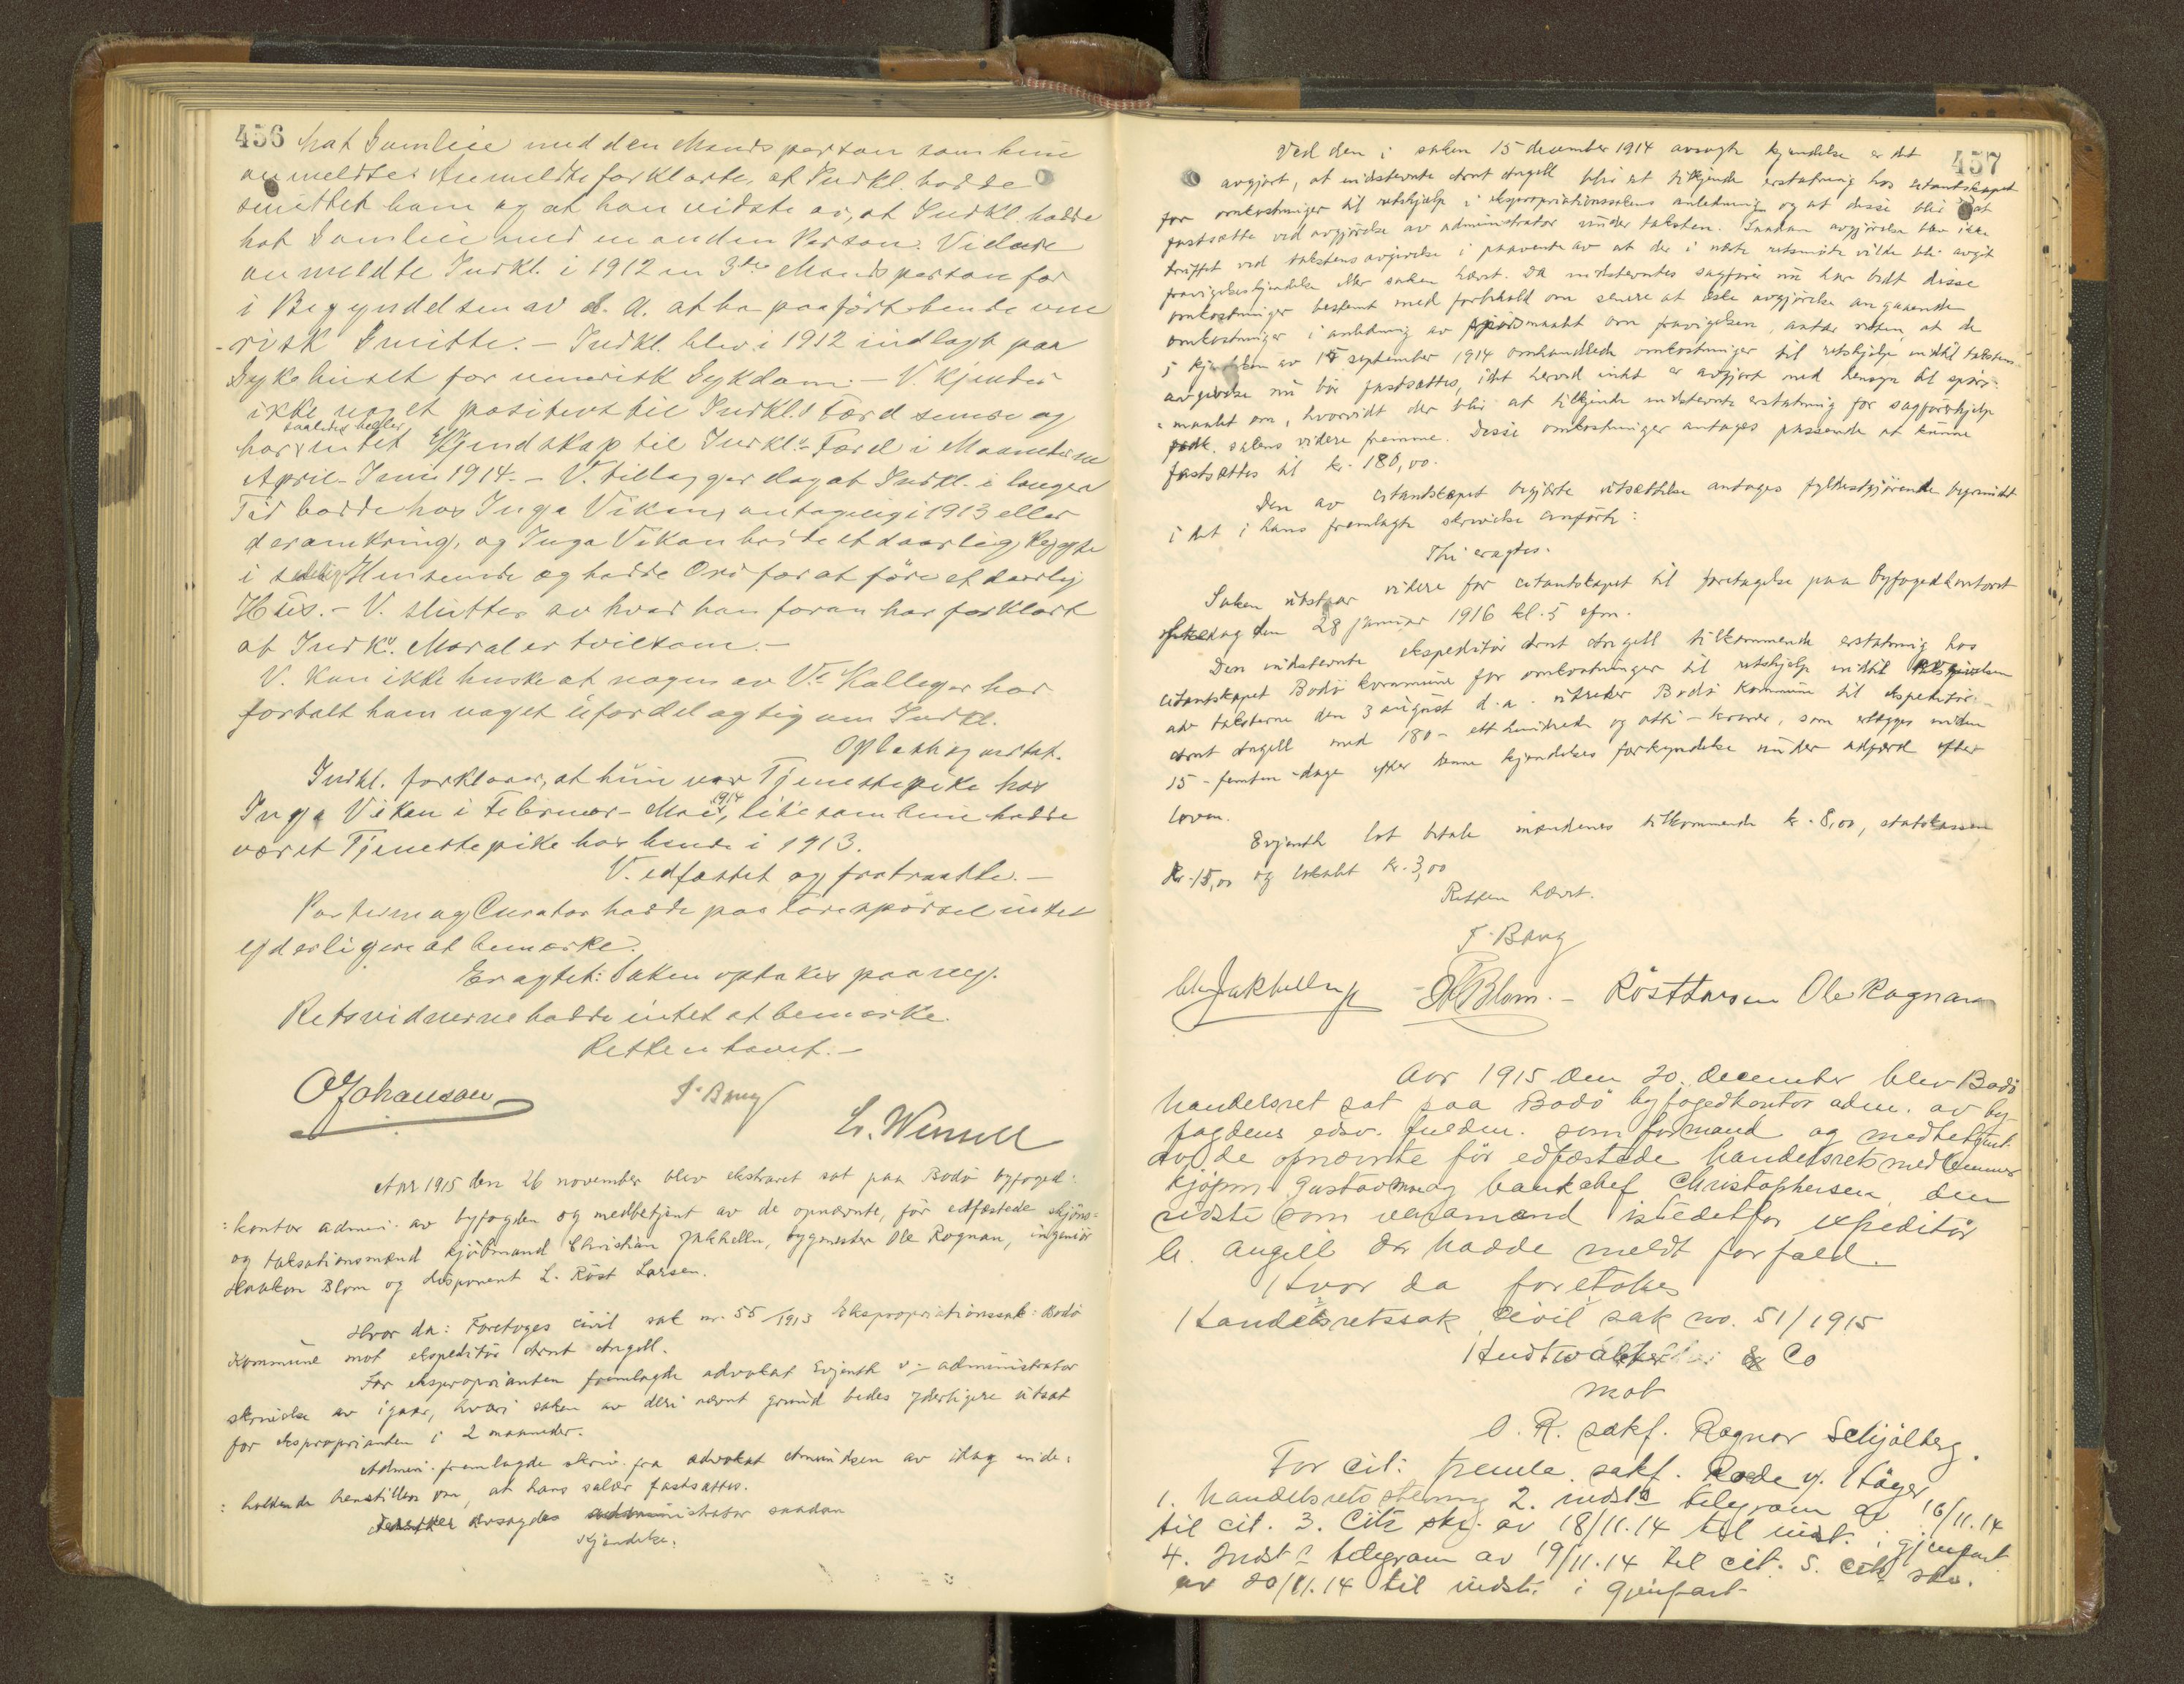 456
hat Samleie med den Mandsperson som hun
anmeldte. Anmeldte forklarte, at Indkl. hadde
smittet ham og at han vidste av, at Indkl. hadde
hat Samleie med en anden Person. Videre
anmeldte Indkl. i 1912 en 3die Mandsperson for
i Begyndelsen av d. A. at ha paaført hende vene
-risk Smitte. - Indkl. blev i 1912 indlagt paa
Sykehuset for venerisk Sykdom. - V. kjender
ikke noget positivt til Indkl.s Færd senere og
har saaledes heller intet Kjendskap til Indkls Færd i Maanederne
April-Juni 1914. - V. tillægger dog at Indkl. i længer
Tid bodde hos Inga Viken, antagelig i 1913 eller
deromkring, og Inga Viken hadde et daarlig Rygte
i sedelig Henseende og hadde Ord for at føre et daarlig
Hus. - V. slutter av hvad han foran har forklart
at Indkls. Moral er tvilsom. -
V. kan ikke huske at nogen av Vs Kolleger har
fortalt ham noget ufordelagtig om Indkl.
Oplæst og vedtat.
Indkl. forklarer, at hun var Tjenestepike hos
Inga Viken i Februar-Mai 1914, likesom hun hadde
været Tjenestepike hos hende i 1913.
V. edfæstet og fratraadte. -
Parterne og Curator hadde paa Forespørsel intet
yderligere at bemærke.
Er agtet: Saken optakes paa ny.
Retsvidnerne hadde intet at bemærke.
Retten hævet. -
O Johansen
J. Bang
Aar 1915 den 26 november blev ekstraret sat paa Bodø byfoged:
:kontor admin. av byfogden og medbetjent av de opnævnte, før edfæstede skjøns=
og taksationsmænd kjøbmand Christian Jakhelln, bygmester Ole Rognan, ingeniør
Haakon Blom og disponent L. Røst Larsen.
Hvor da: Foretoges civil sak nr. 55/1913 Ekspropriationssak: Bodø
kommune mot ekspeditør Arnt Angell.
For eksproprianten fremlagde advokat Evjenth v. administrator
skrivelse av igaar, hvori saken av deri nævnt grund bedes yderligere utsat
for eksproprianten i 2 maaneder.
Admin. fremlagde skriv. fra advokat Amundsen av idag inde:
:holdende henstillen om, at hans salær fastsættes.
Derefter avsagdes administrator saadan
Kjendelse:
457
Ved den i saken 15 december 1914 avsagte kjendelse er det
avgjort, at indstevnte Arnt Angell blir at tilkjende erstatning hos citantskapet
for omkostninger til retshjælp i ekspropriationssakens anledning og at disse blir at
fastsætte ved avgjørelse av administrator under taksten. Saadan avgjørelse blev ikke
truffet ved takstens avgivelse i paavente av at der i næste retsmøte vilde bli avgit
fravigelseskjendelse eller saken hævet. Da indstevntes sagfører nu har bedt disse
omkostninger bestemt med forbehold om senere at æske avgjørelse angaaende
omkostninger i anledning av spørsmaalet om fravigelsen, antar retten, at de
i kjendelsen av 15 september 1914 omhandlede omkostninger til retshjælp indtil takstens
avgivelse nu bør fastsættes, idet herved intet er avgjort med hensyn til spørs:
:maalet om, hvorvidt der blir at tilkjende indstevnte erstatning for sagførerhjelp
sakens videre fremme. Disse omkostninger antages passende at kunne
fastsættes til kr. 180,00.
Den av citantskapet begjærte utsættelse antages fyldestgjørende begrundet
i det i hans fremlagte skrivelse anførte:
Thi eragtes:
Saken utstaar videre for citantskapet til foretagelse paa byfogedkontoret
fredag den 28 januar 1916 kl. 5 efm.
Den indstevnte ekspeditør Arnt Angell tilkommende erstatning hos
citantskapet Bodø kommune for omkostninger til retshjelp indtil avgivelsen
av taksterne den 3 august d.a. utreder Bodø kommune til ekspeditør
Arnt Angell med 180 - ett hundrede og otti - kroner, som erlægges inden
15 - femten - dage efter denne kjendelses forkyndelse under adfærd efter
loven.
Evjenth lot betale mændenes tilkommende kr. 8,00, statskassen
Kr. 15,00 og lokalet kr. 3,00
Retten hævet.
J. Bang
Chr Jakhelln H Blom. - Røst Larsen Ole Rognan
Aar 1915 den 20. december blev Bodø
handelsret sat paa Bodø byfogedkontor adm. av by-
fogdens edsv. fuldm. som formand og medbetjent
av de opnævnte før edfæstede handelsretsmedlemmer
kjøpm. Gustav Moe og bankchef Christophersen, den
sidste som varamand istedetfor expeditør
A. Angell der hadde meldt forfald.
Hvor da foretokes
Handelsretssak civil sak no. 51/1915
Hudtwalcker & Co
mot
O. R. sakf. Ragnar Schjølberg.
For cit: fremla sakf. Rode v. Høyer
1. handelsrets stevning 2. indsts telegram av 16/11.14
til cit. 3. Cits skr. av 18/11.14 til indst. i gjenpart
4. Indsts telegram av 19/11.14 til cit. 5. Cits skr.
av 20/11.14 til indst. i gjenpart